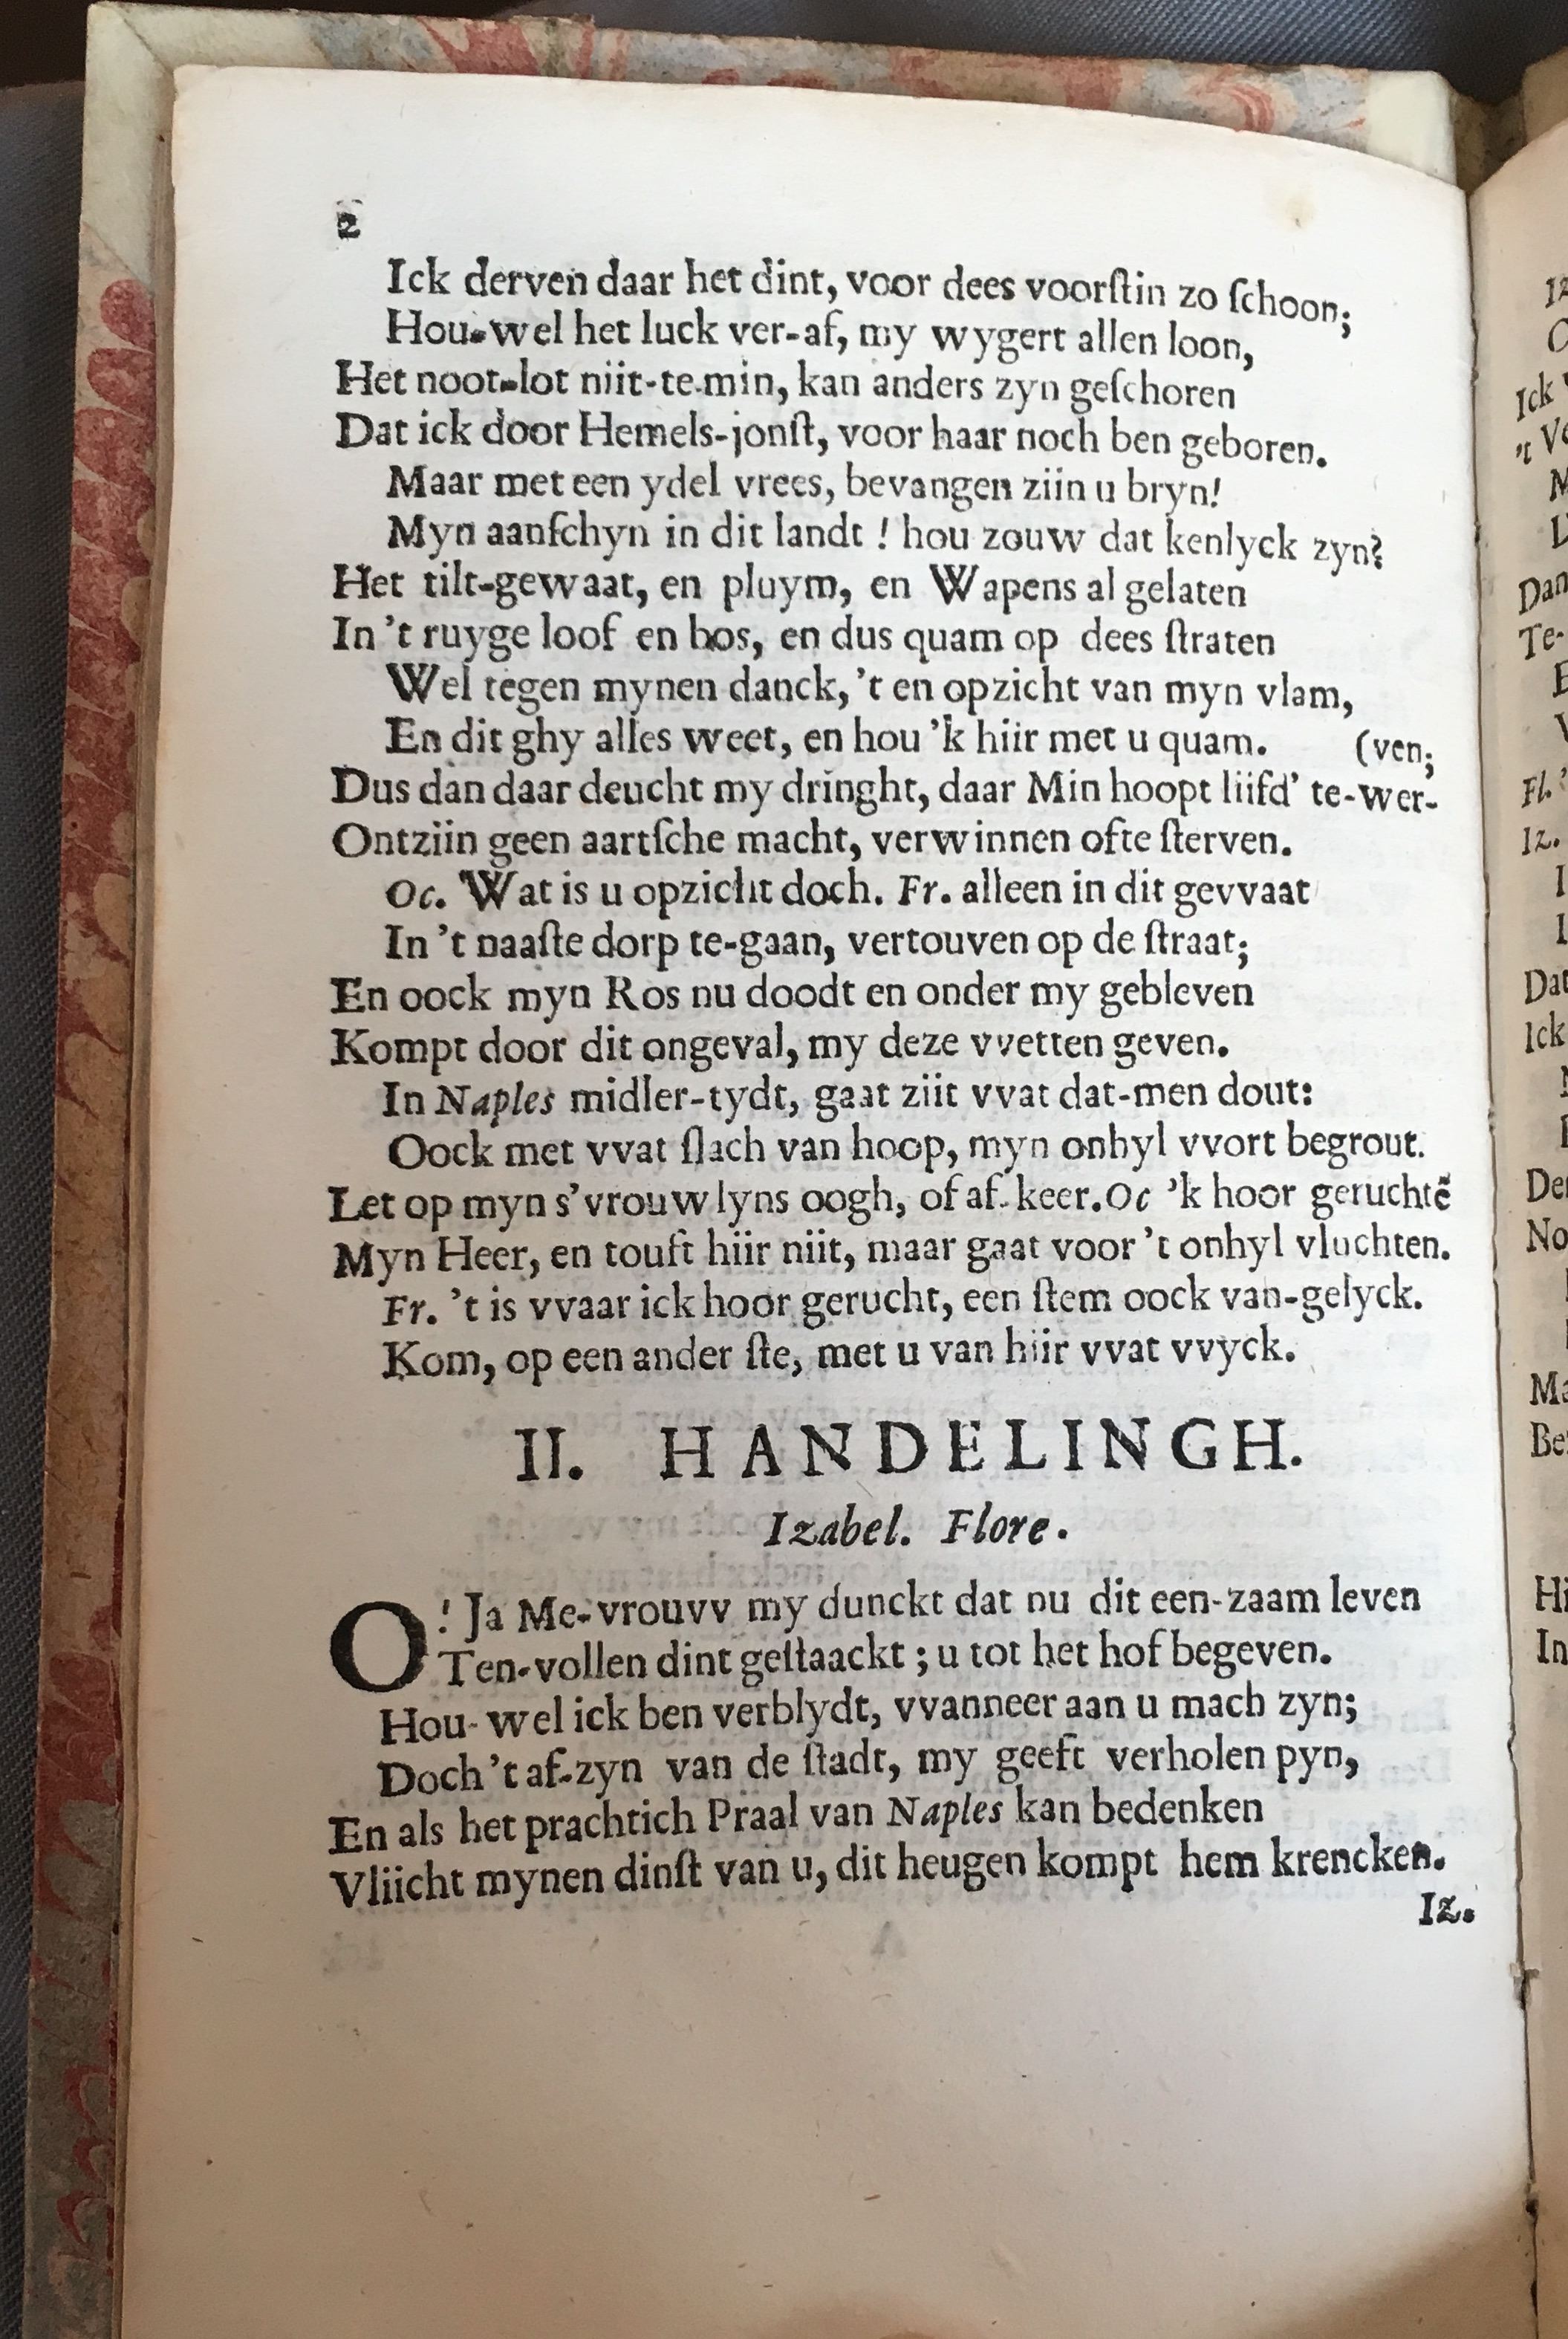 2
Ick derven daar het dint, voor dees voorſtin zo ſchoon;
Hou-wel het luck ver-af, my wygert allen loon,
Het noot-lot niit-te-min, kan anders zyn geſchoren
Dat ick door Hemels-jonſt, voor haar noch ben geboren.
Maar met een ydel vrees, bevangen ziin u bryn!
Myn aanſchyn in dit landt ! hou zouw dat kenlyck zyn?
Het tilt-gewaat, en pluym, en Wapens al gelaten
In 't ruyge loof en bos, en dus quam op dees ſtraten
Wel tegen mynen danck, 't en opzicht van myn vlam,
En dit ghy alles weet, en hou 'k hiir met u quam. (ven;
Dus dan daar deucht my dringht, daar Min hoopt liifd' te-wer-
Ontziin geen aartſche macht, verwinnen ofte ſterven.
Oc. Wat is u opzicht doch. Fr. alleen in dit gevvaat
In 't naaſte dorp te-gaan, vertouven op de ſtraat;
En oock myn Ros nu doodt en onder my gebleven
Kompt door dit ongeval, my deze vvetten geven.
In Naples midler-tydt, gaat ziit vvat dat-men dout:
Oock met vvat ſlach van hoop, myn onhyl vvort begrout.
Let op myn s'vrouwlyns oogh, of af-keer. Oc 'k hoor geruchtē
Myn Heer, en touft hiir niit, maar gaat voor 't onhyl vluchten.
Fr. 't is vvaar ick hoor gerucht, een ſtem oock van-gelyck.
Kom, op een ander ſte, met u van hiir vvat vvyck.
II. HANDELINGH.
Izabel. Flore.
O! Ja Me-vrouvv my dunckt dat nu dit een-zaam leven
Ten-vollen dint geſtaackt ; u tot het hof begeven.
Hou-wel ick ben verblydt, vvanneer aan u mach zyn;
Doch 't af-zyn van de ſtadt, my geeft verholen pyn,
En als het prachtich Praal van Naples kan bedenken
Vliicht mynen dinſt van u, dit heugen kompt hem krencken.
Iz.
Ick
't
Dan
Te-
Fl.
Iz.
Dat
Ick
In